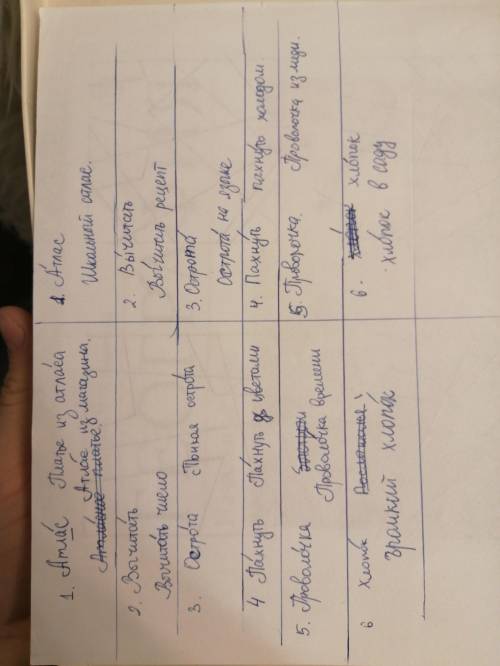 1. Атла́с Платье из атла́са
Атлас из магазина.
2. Вычита́ть
Вычита́ть число
3. Остро́та
Тонкая остро́та
4 Па́хнуть Па́хнуть цветами
5. Проволо́чка
Проволо́чка времени
6 Хлопо́к
громкий хлопо́к
1. А́тлас
Школьный атлас.
2. Вы́читать
Вы́читать рецепт
3. Острота́
Острота́ на языке
4. Пахну́ть пахнуть холодом
5. Про́волочка. Проволочка из меди.
6. хло́пок
хло́пок в саду